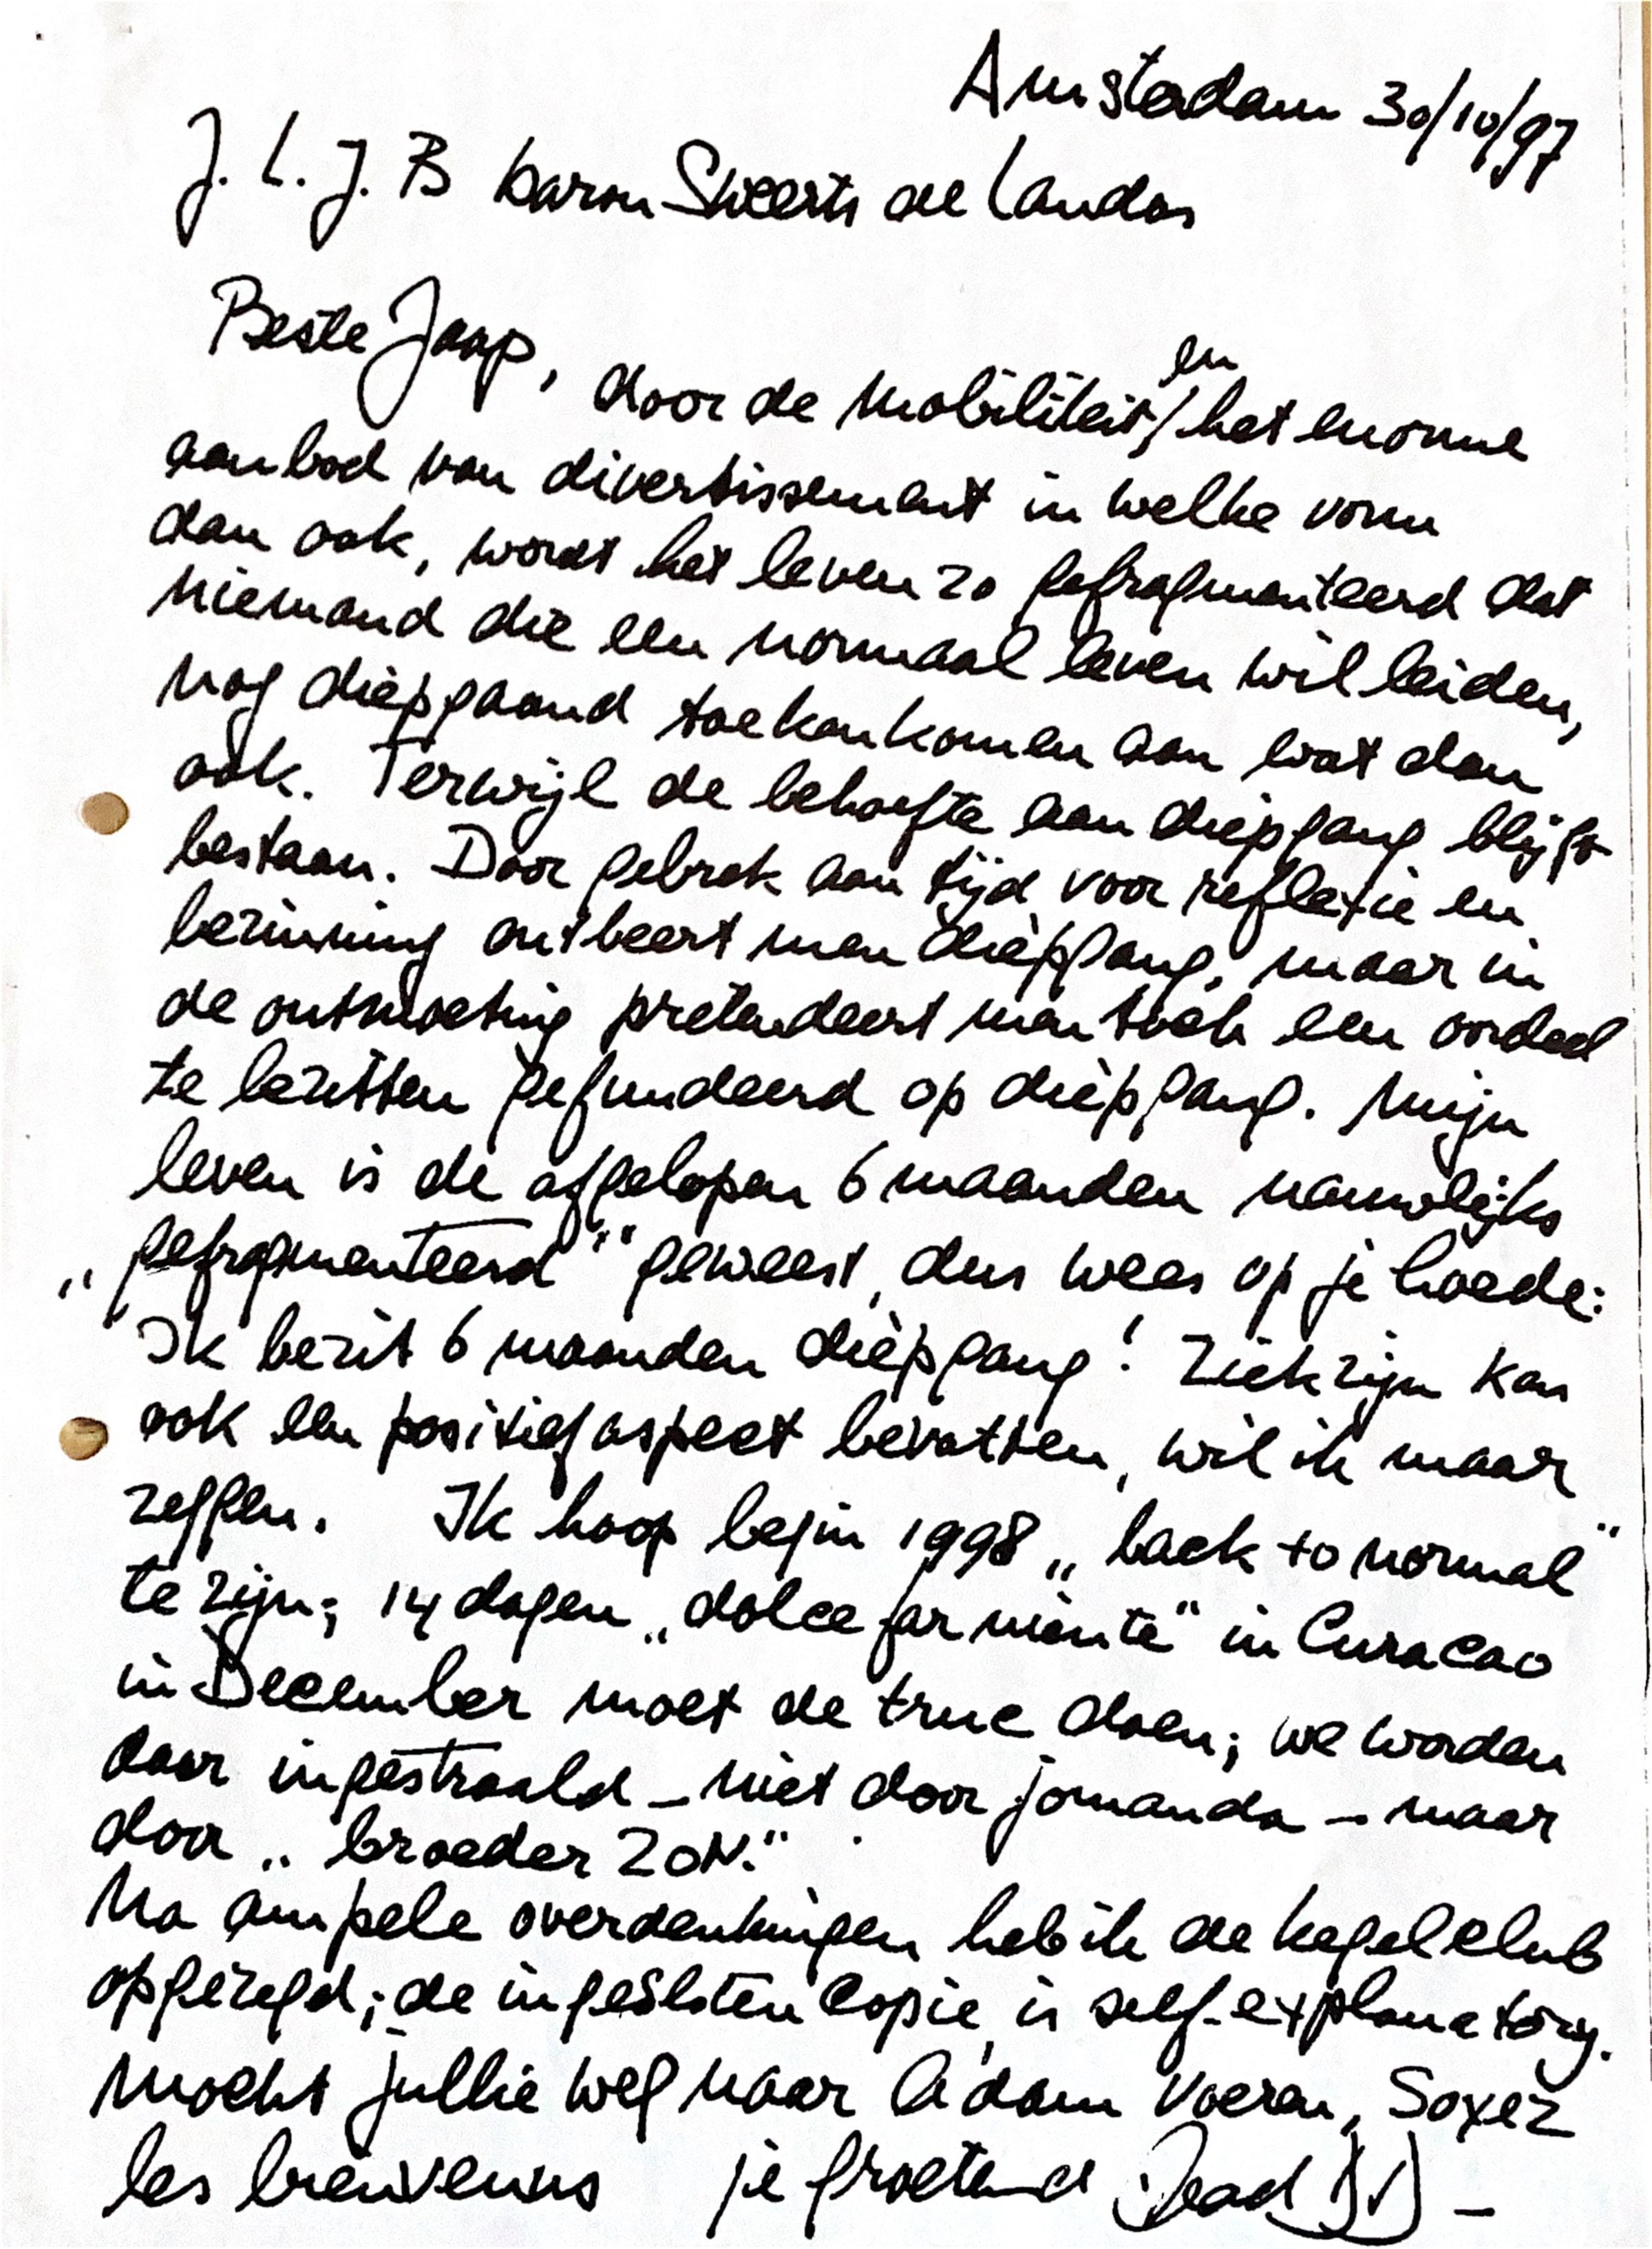 Amsterdam 30/10/97
J. L. J. B baron Sweerts de Landas
Beste Jaap, door de mobiliteit / het enorme
en
aanbod van divertissement in welke vorm
dan ook, wordt het leven zo gefragmenteerd dat
niemand die een normaal leven wil leiden,
nog diepgaand toe kan komen aan wat dan
ook. Terwijl de behoefte aan diepgang blijft
bestaan. Door gebrek aan tijd voor reflexie en
bezinning ontbeert men diepgang, maar in
de ontmoeting pretendeert men toch een oordeel
te bezitten gefundeerd op diepgang. Mijn
leven is de afgelopen 6 maanden nauwelijks
„gefragmenteerd" geweest, dus wees op je hoede:
Ik bezit 6 maanden diepgang! Ziek zijn kan
ook een positief aspect bevatten, wil ik maar
zeggen. Ik hoop begin 1998 „back to normal"
te zijn; 14 dagen „dolce far niente" in Curacao
in December moet de truc doen; we worden
daar ingestraald – niet door jomanda – maar
door „broeder ZON."
Na ampele overdenkingen heb ik de kegelclub
opgezegd; de ingesloten Copie, is self-explanatory.
Mocht jullie weg naar A'dam voeren, Soyez
les bienvenus je groetend